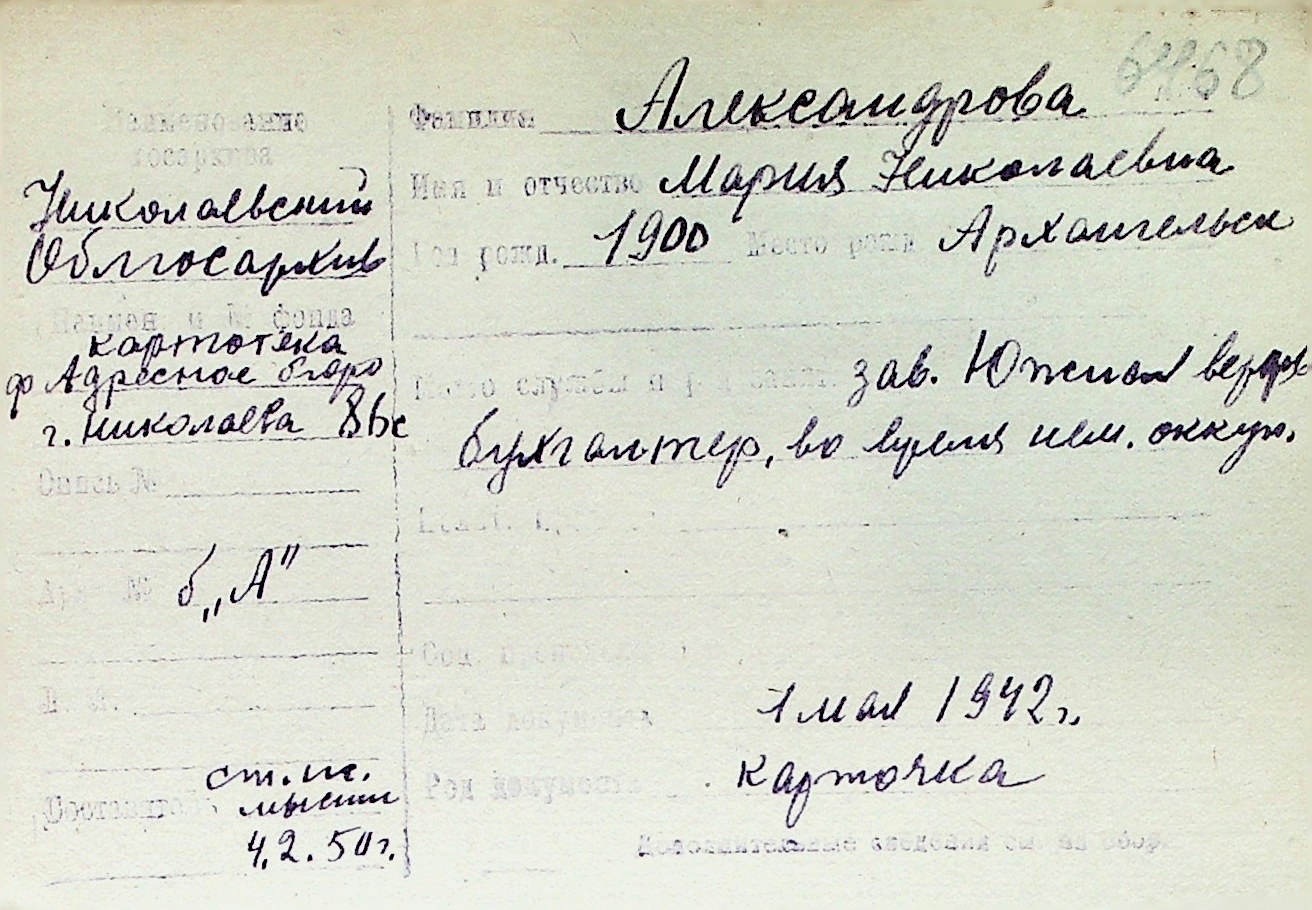 6468
Наименование
госархива
Николаевский
Облгосархив
Наимен и № фонда
картотека
ф Адресное бюро
г. Николаева 86с
Опись №
Арх №
б „А"
Л. л.
Составитель
ст. ис.
4.2.50 г.
Фамилия Александрова
Имя и отчество Мария Николаевна
Год рожд. 1900 Место рожд Архангельск
Место службы и зав. Южная верфь
бухгалтер, во время нем. оккуп.
Соц. происх
Дата документа 1 мая 1942 г.
Род документа карточка
Дополнительные сведения см на обор